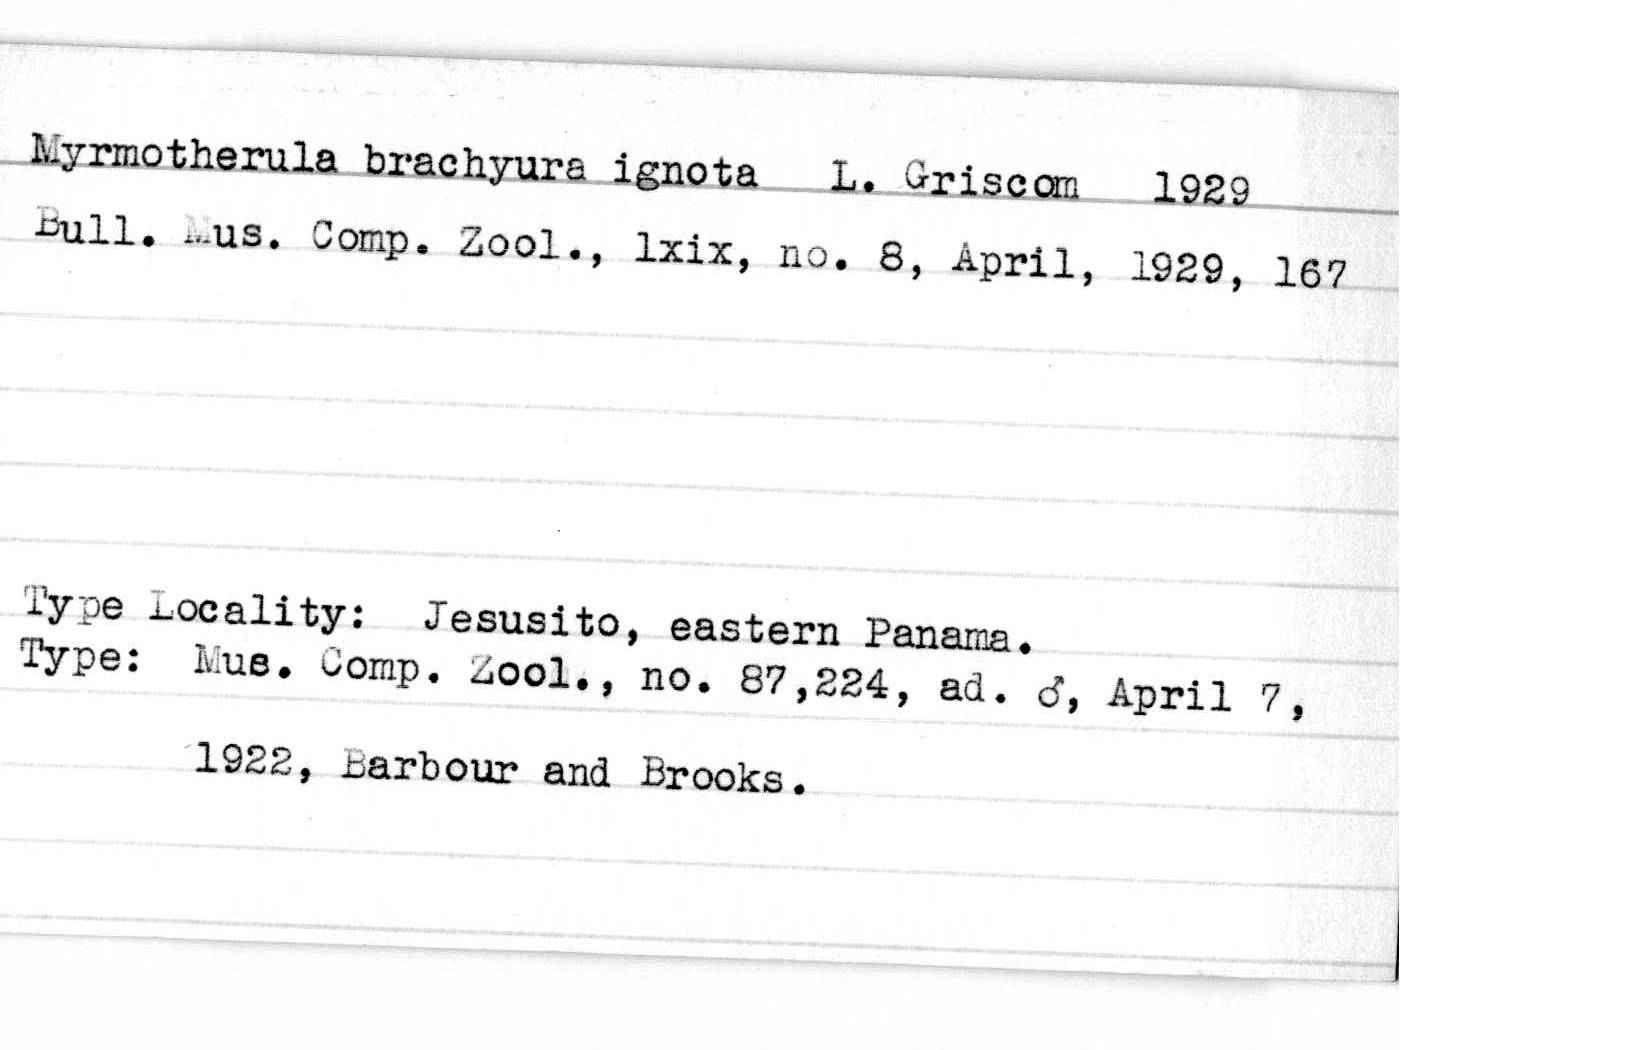 Myrmotherula brachyura ignota L. Griscom 1929
Bull. Mus. Comp. Zool., lxix, no. 8, April, 1929, 167
Type Locality: Jesusito, eastern Panama.
Type: Mus. Comp. Zool., no. 87,224, ad. ♂, April 7,
1922, Barbour and Brooks.